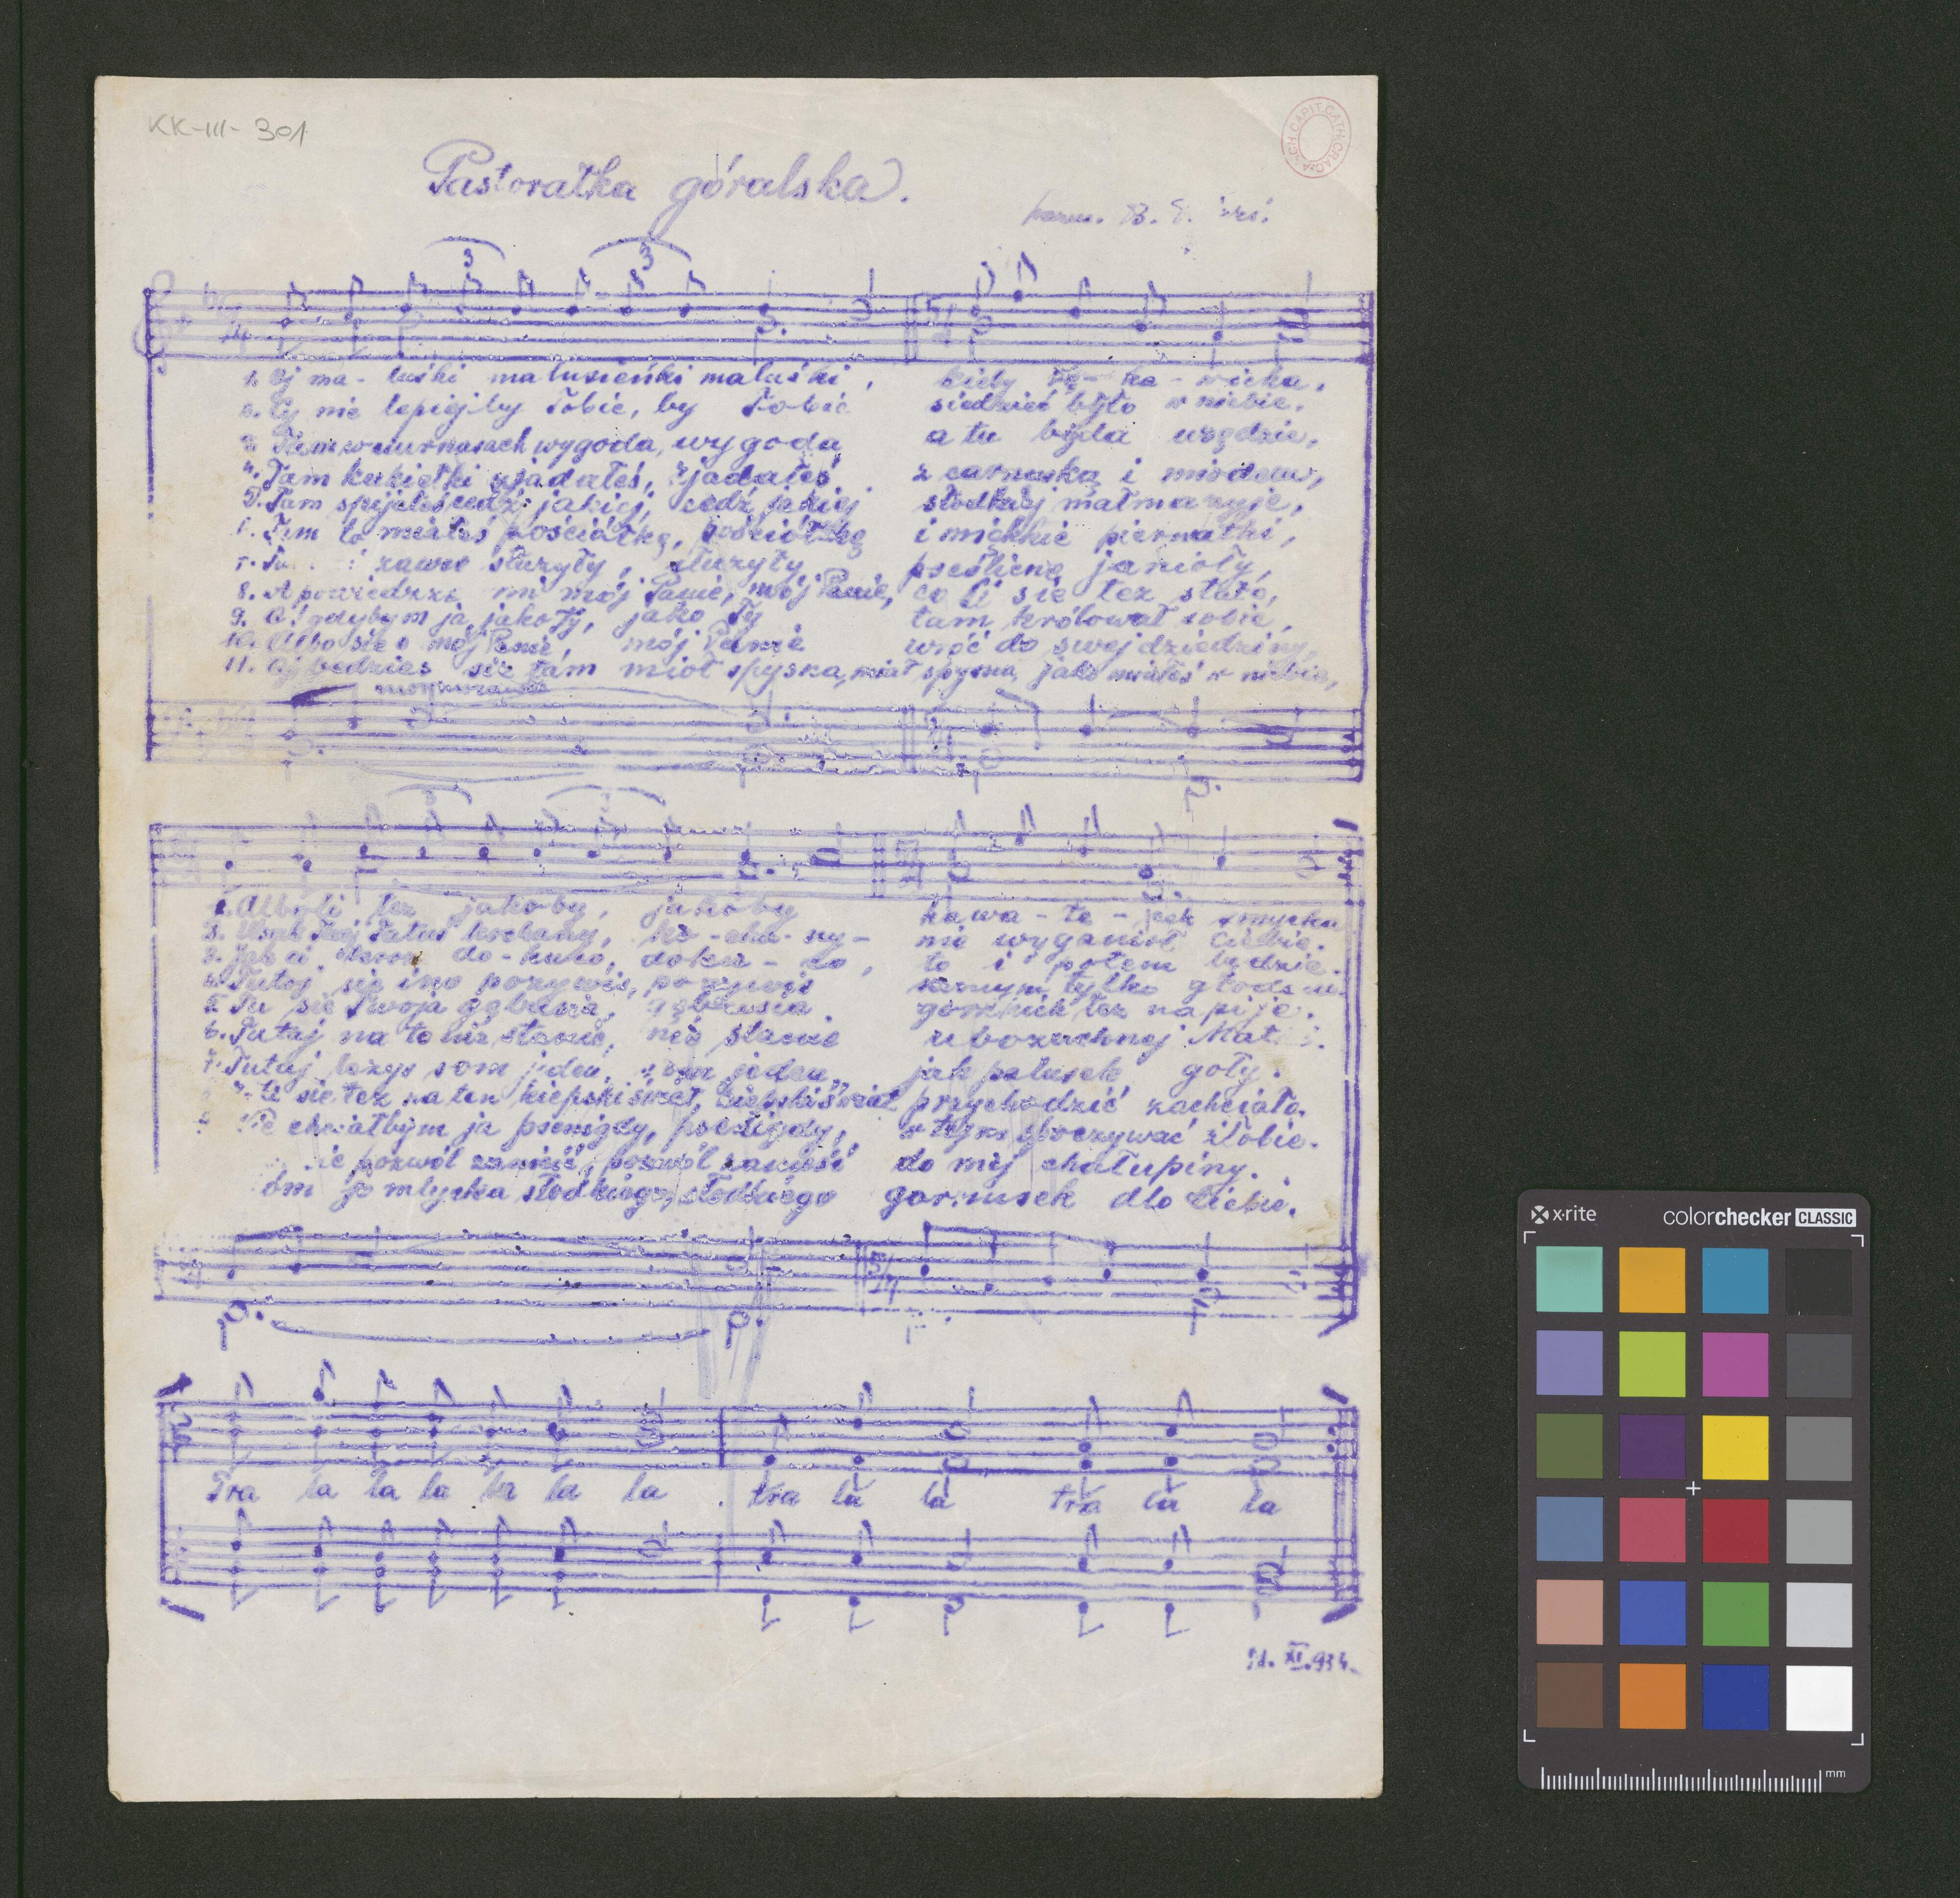 KK-III-301
Pastorałka góralska.
harm. B.
3 3
1. Oj ma - luśki malusieńki maluśki, kieby rę - ka - wicka,
2. Cy nie lepiej by Tobie, by Tobie siedzieć było w niebie,
3. wygoda, wygoda a tu bida wszędzie,
4. Tam kukiełki zjadałeś, zjadałeś z carnuską i miodem,
5. Tam spijałeś cedź jakiej, cedź jakiej słodkiej małmazyje,
6. Tam to miałeś pościółkę, pościółkę i miękkie piernatki,
7. zawse słuzyły, słuzyły pseśliczne janioły,
8. A powiedzze mi mój Panie, mój Panie, co Ci sie tez stało,
9. A! gdybym ja, jako Ty, jako Ty tam królował sobie,
10. Albo sie o mój Panie, mój Panie wróć do swej dziedziny,
11. Oj bedzies sie tam mioł spyska, miał spyska, jako miałeś w niebie,
mormorando
3 3
1. Alboli tez jakoby, jakoby kawa - łe - cek smycka
2. Wsak Twój Tatuś kochany, ko - cha - ny - nie wyganioł Ciebie.
3. do - kuko, to i potem bedzie.
4. Tutoj się ino pozywis, pozywis samym tylko głodem.
5. Tu się Twoja gębusia, gębusia gorzkich łez napije.
6. Tutaj na to nie stanie, nie stanie ubozuchnej
7. Tutaj lezys som jeden, som jeden jak palusek goły.
Ci sie tez na ten kiepski świat, kiepski świat przychodzić zachciało.
chciałbym ja psenigdy, psenigdy, w tej spoczywać złobie.
pozwól zanieść, pozwól zanieść do mej chałupiny.
mlycka słodkiego, słodkiego garnusek dlo Ciebie.
Tra la la la la la la tra la la tra la la
XI.934.
x·rite colorchecker CLASSIC
mm